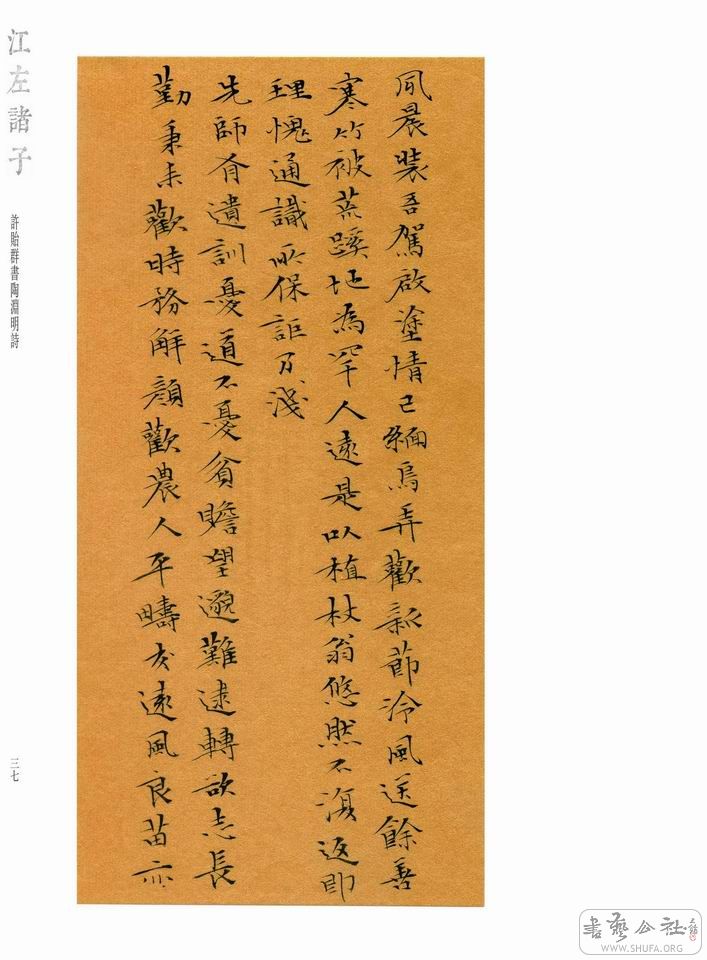 夙晨裝吾駕啟塗情已緬鳥弄歡新節冷風送餘善
寒竹被荒蹊地為罕人遠是以植杖翁悠然不復返即
理愧通識所保詎乃淺
先師有遺訓憂道不憂貧瞻望邈難逮轉欲志長
勤秉耒歡時務解顏歡農人平疇交遠風良苗亦
江左諸子
許貽群書陶淵明詩
三七
書藝公社
WWW.SHUFA.ORG